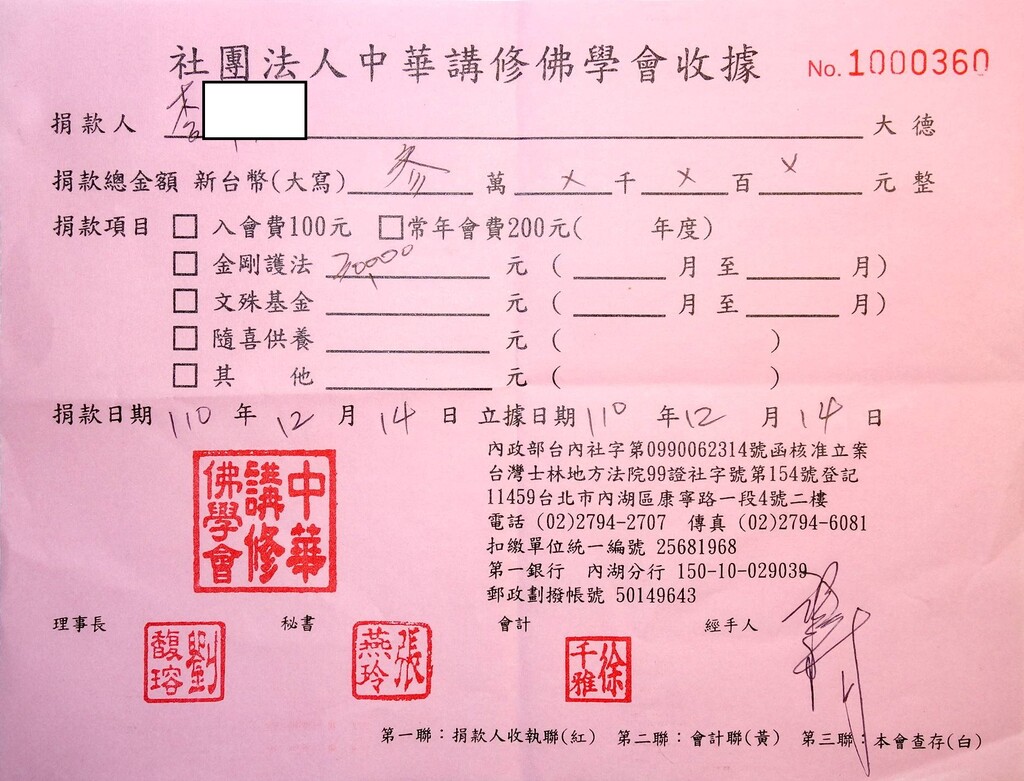 社團法人中華講修佛學會收據 No. 1000360
捐款人 李 大德
捐款總金額 新台幣(大寫) 參 萬 × 千 × 百 × 元整
捐款項目 □ 入會費100元 □常年會費200元( 年度)
□ 金剛護法 30000 元 ( 月 至 月)
□ 文殊基金 元 ( 月 至 月)
□ 隨喜供養 元 ( )
□ 其 他 元 ( )
捐款日期 110 年 12 月 14 日 立據日期 110 年 12 月 14 日
內政部台內社字第0990062314號函核准立案
台灣士林地方法院99證社字號第154號登記
11459台北市內湖區康寧路一段4號二樓
電話 (02)2794-2707 傳真 (02)2794-6081
扣繳單位統一編號 25681968
第一銀行 內湖分行 150-10-029039
郵政劃撥帳號 50149643
中華講修佛學會
理事長 劉馥瑢 秘書 張燕玲 會計 徐千雅 經手人
第一聯：捐款人收執聯(紅) 第二聯：會計聯(黃) 第三聯：本會查存(白)